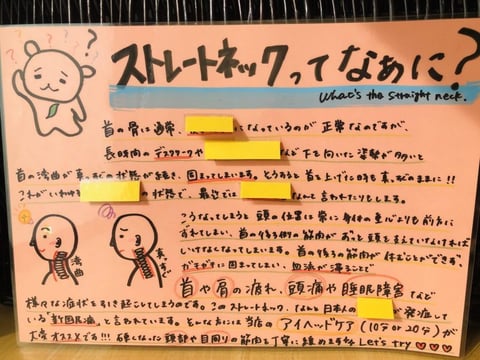 ストレートネックってなあに?
What's the straight neck.
首の骨は通常、になっているのが正常なのですが、
長時間のデスクワークやなど下を向いた姿勢が多いと
首の湾曲が真っ直ぐの状態が続き、固まってしまいます。そうすると首を上げた時も真っ直ぐのままに!!
これがいわゆるの状態で、最近ではなんて言われたりもします。
こうなってしまうと頭の位置は常に身体の重心よりも前方に
ずれてしまい、首の後ろ側の筋肉がずっと頭を支えていなければ
いけなくなってしまいます。首の後ろの筋肉が休むことができず、
ガチガチに固まってしまい、血流が滞ることで
湾曲
真っすぐ
首や肩の疲れ、頭痛や睡眠障害など
様々な症状を引き起こしてしまうのです。このストレートネック、なんと日本人のが発症して
いる"新国民病"と言われています。そんな方には当店のアイヘッドケア(10分or20分)が
大変オススメです!!!硬くなった頭部や目周りの筋肉を丁寧に緩めますね Let's try